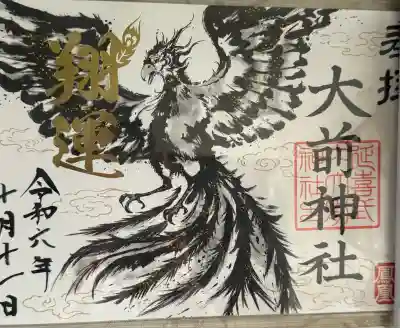 奉拝
大前神社
延喜式
内社
鳳凰
翔運
令和六年
十月十一日